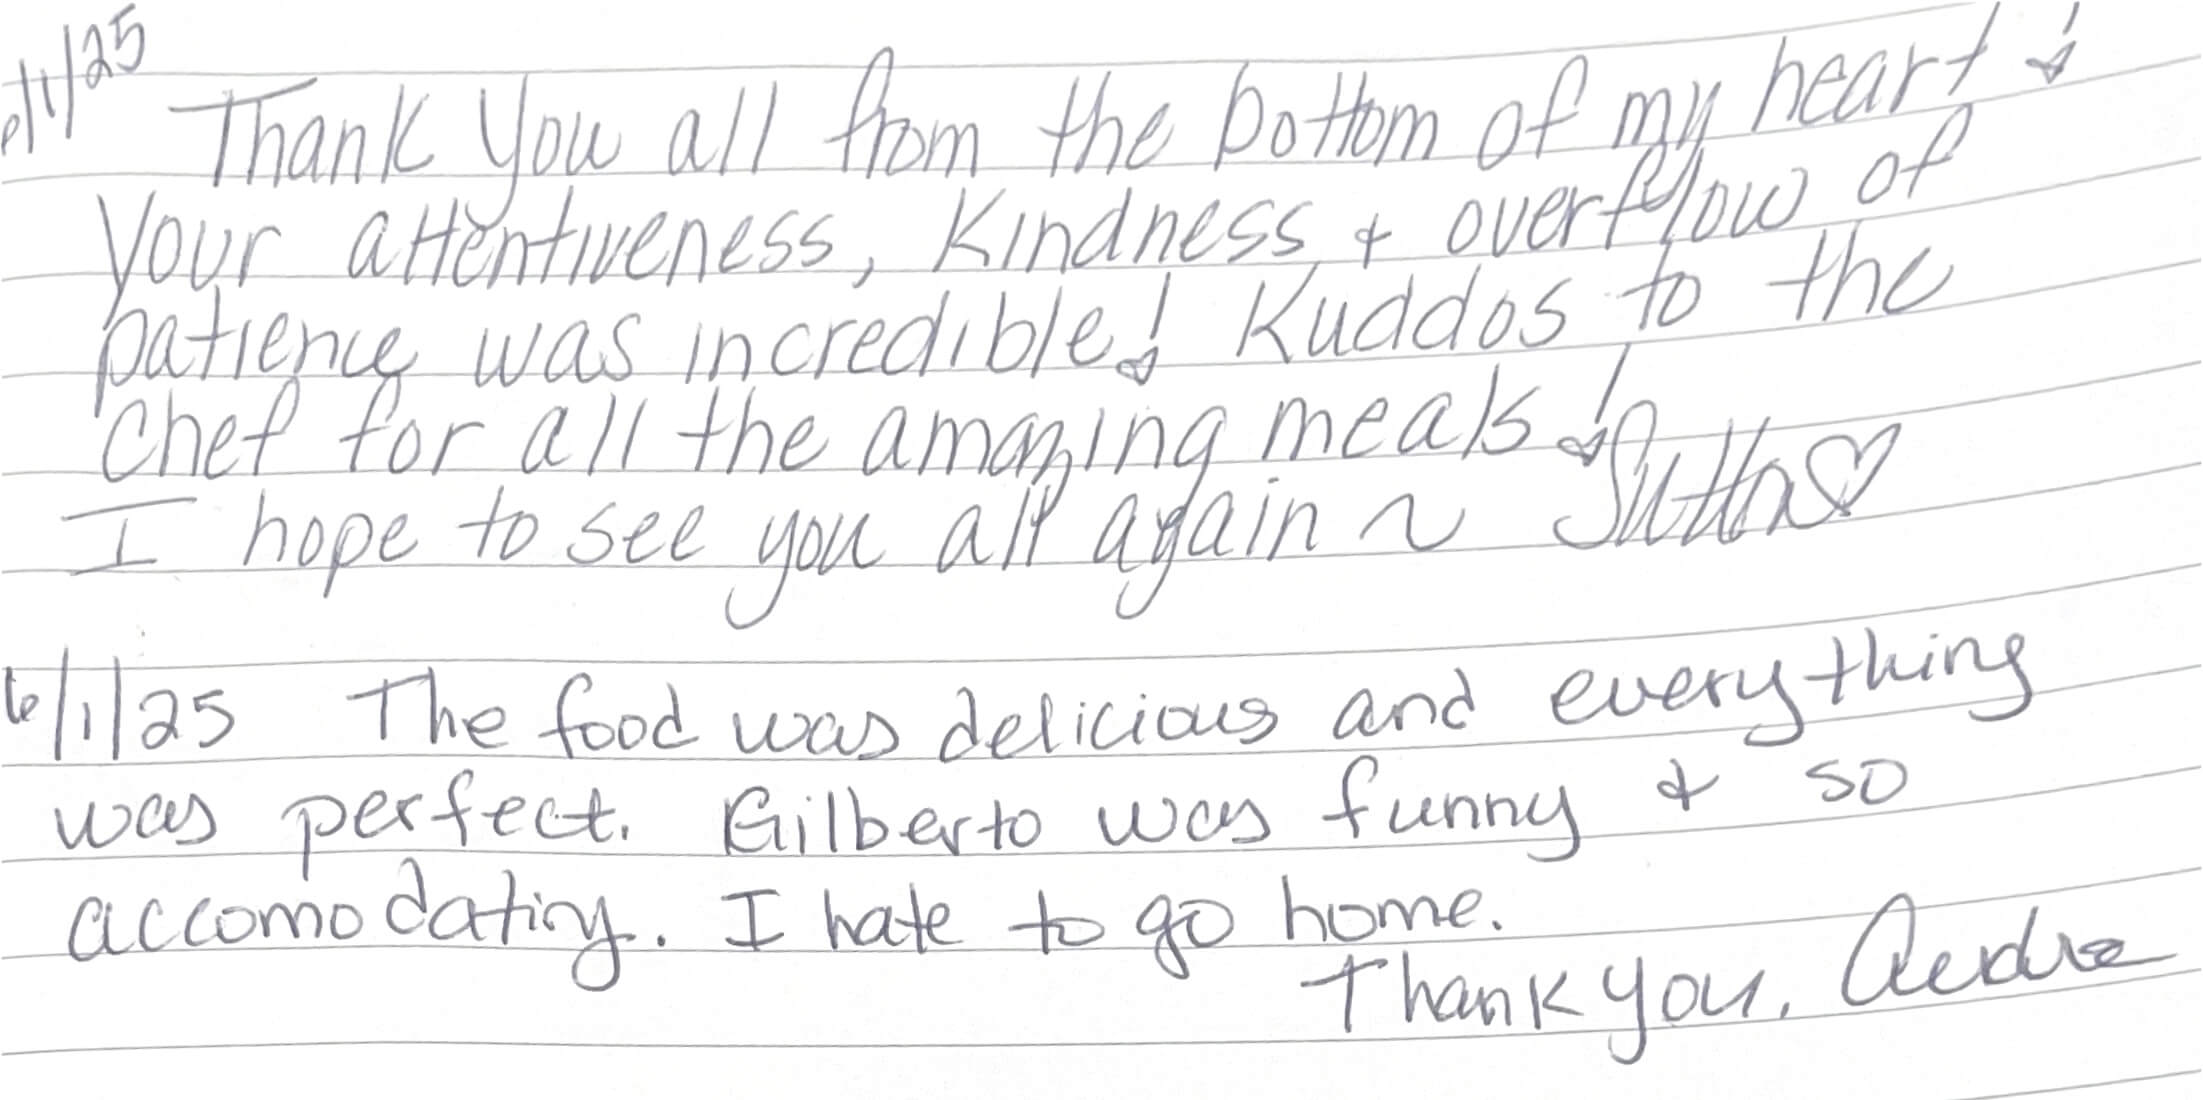 6/1/25 Thank You all from the bottom of my heart!
Your attentiveness, Kindness & overflow of
patience was incredible! Kuddos to the
Chef for all the amazing meals!
I hope to see you all again ~
6/1/25 The food was delicious and everything
was perfect. Gilberto was funny & so
accomodating. I hate to go home.
Thank you,